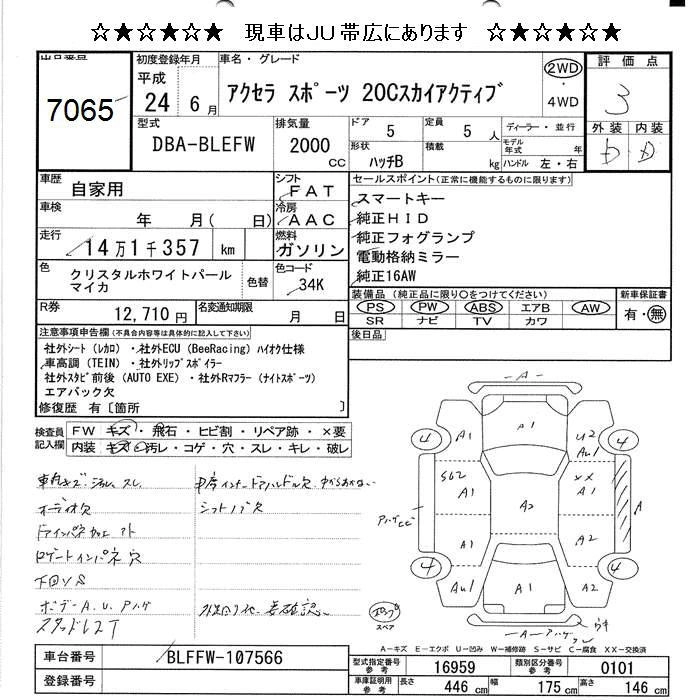 ☆★☆★☆★ 現車はJU帯広にあります ☆★☆★☆★
7065
初度登録年月
平成
24年6月
車名・グレード
アクセラ スポーツ 20Cスカイアクティブ
2WD
・
4WD
評価点
3
外装 内装
D D
型式
DBA-BLEFW
排気量
2000 CC
ドア 5
定員 5人
形状 ハッチB
積載 kg
ディーラー・並行
モデル年式 年
ハンドル 左・右
車歴 自家用
シフト FAT
車検 年 月( 日)
冷房 AAC
走行 14万1千357 km
燃料 ガソリン
色 クリスタルホワイトパールマイカ
色替
色コード 34K
R券 12,710円
名変通知期限 月 日
セールスポイント(正常に機能するものに限ります)
スマートキー
純正HID
純正フォグランプ
電動格納ミラー
純正16AW
装備品(純正品に限り○をつけてください)
PS PW ABS エアB AW
SR ナビ TV カワ
新車保証書
有・無
後日品
注意事項申告欄(不具合内容等は具体的に記入して下さい)
社外シート(レカロ)・社外ECU(BeeRacing)ハイオク仕様
車高調(TEIN)・社外リップスポイラー
社外スタビ前後(AUTO EXE)・社外Rマフラー(ナイトスポーツ)
エアバック欠
修復歴 有〔箇所 〕
検査員記入欄
FW キズ・飛石・ヒビ割・リペア跡・×要
内装 キズ・汚レ・コゲ・穴・スレ・キレ・破レ
オーディオ欠
シフトノブ欠
下回りS
ボデーA.U.アハゲ
A
A1
A1
U2
Au1
4
4
S62
A1
A2
XX
A1
A
A1
A2
4
4
Au1
A1
A2
スペア
A-キズ E-エクボ U-凹み W-補修跡 S-サビ C-腐食 XX-交換済
車台番号 BLFFW-107566
登録番号
型式指定番号 参考 16959
類別区分番号 参考 0101
車庫証明用 参考 長さ 446cm 幅 175cm 高さ 146cm